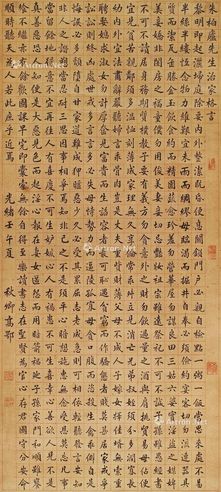 廬先生家言
黎明即起灑掃庭內外整潔既昏便息關鎖門戶必親自檢點一粥一飯當思來處不易
半絲半縷恒念物力維艱宜未雨而綢繆毋臨渴而掘井自奉必須儉約宴客切勿流連器具
質而潔瓦缶勝金玉飲食約而精園蔬愈珍饈勿營華屋勿謀良田三姑六婆實淫盜之媒婢
美妾嬌非閨房之福童僕勿用俊美妻妾切忌豔妝祖宗雖遠祭祀不可不誠子孫雖愚經書
不可不讀居身務期質樸教子要有義方勿貪意外之財勿飲過量之酒與肩挑貿易毋佔便
宜見貧苦親鄰須加溫恤刻薄成家理無久享倫常乖舛立見消亡兄弟叔姪須分多潤寡長
幼內外宜法肅辭嚴聽婦言乖骨肉豈是丈夫重貲財薄父母不成人子嫁女擇佳壻毋索重
聘娶媳求淑女勿計厚奩見富貴而生諂容者最可恥遇貧窮而作驕態者賤莫甚居家戒爭
訟訟則終凶處世戒多言言多必失毋恃勢力而凌逼孤寡毋貪口腹而恣殺生禽乖僻自是
悔誤必多頹惰自甘家道難成狎暱惡少久必受其累屈志老成急則可相依輕聽發言安知
非人之譖愬當忍耐三思因事相爭焉知非己之不是須平心暗想施惠無念受恩莫忘凡事
當留餘地得意不宜再往人有喜慶不可生妒嫉心人有禍患不可生喜幸心善欲人見不是
真善惡恐人知便是大惡見色而起淫心報在妻女匿怨而用暗箭禍延子孫家門和順雖饔
飧不繼亦有餘歡國課早完即囊橐無餘自得至樂讀書志在聖賢為官心存君國守分安命
順時聽天為人若此庶乎近焉
光緒壬午夏 秋卿高鄂